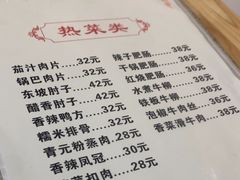 热菜类
茄汁肉片……32元
锅巴肉片……32元
东坡肘子……42元
醋香肘子……42元
香辣鸭方……32元
糯米排骨……32元
青元粉蒸肉……28元
香辣凤冠……30元
扣肉……28元
辣子肥肠……38元
干锅肥肠……38元
红烧肥肠……36元
水煮牛柳……38元
铁板牛柳……38元
泡椒牛肉丝……36元
香菜滑牛肉……38元